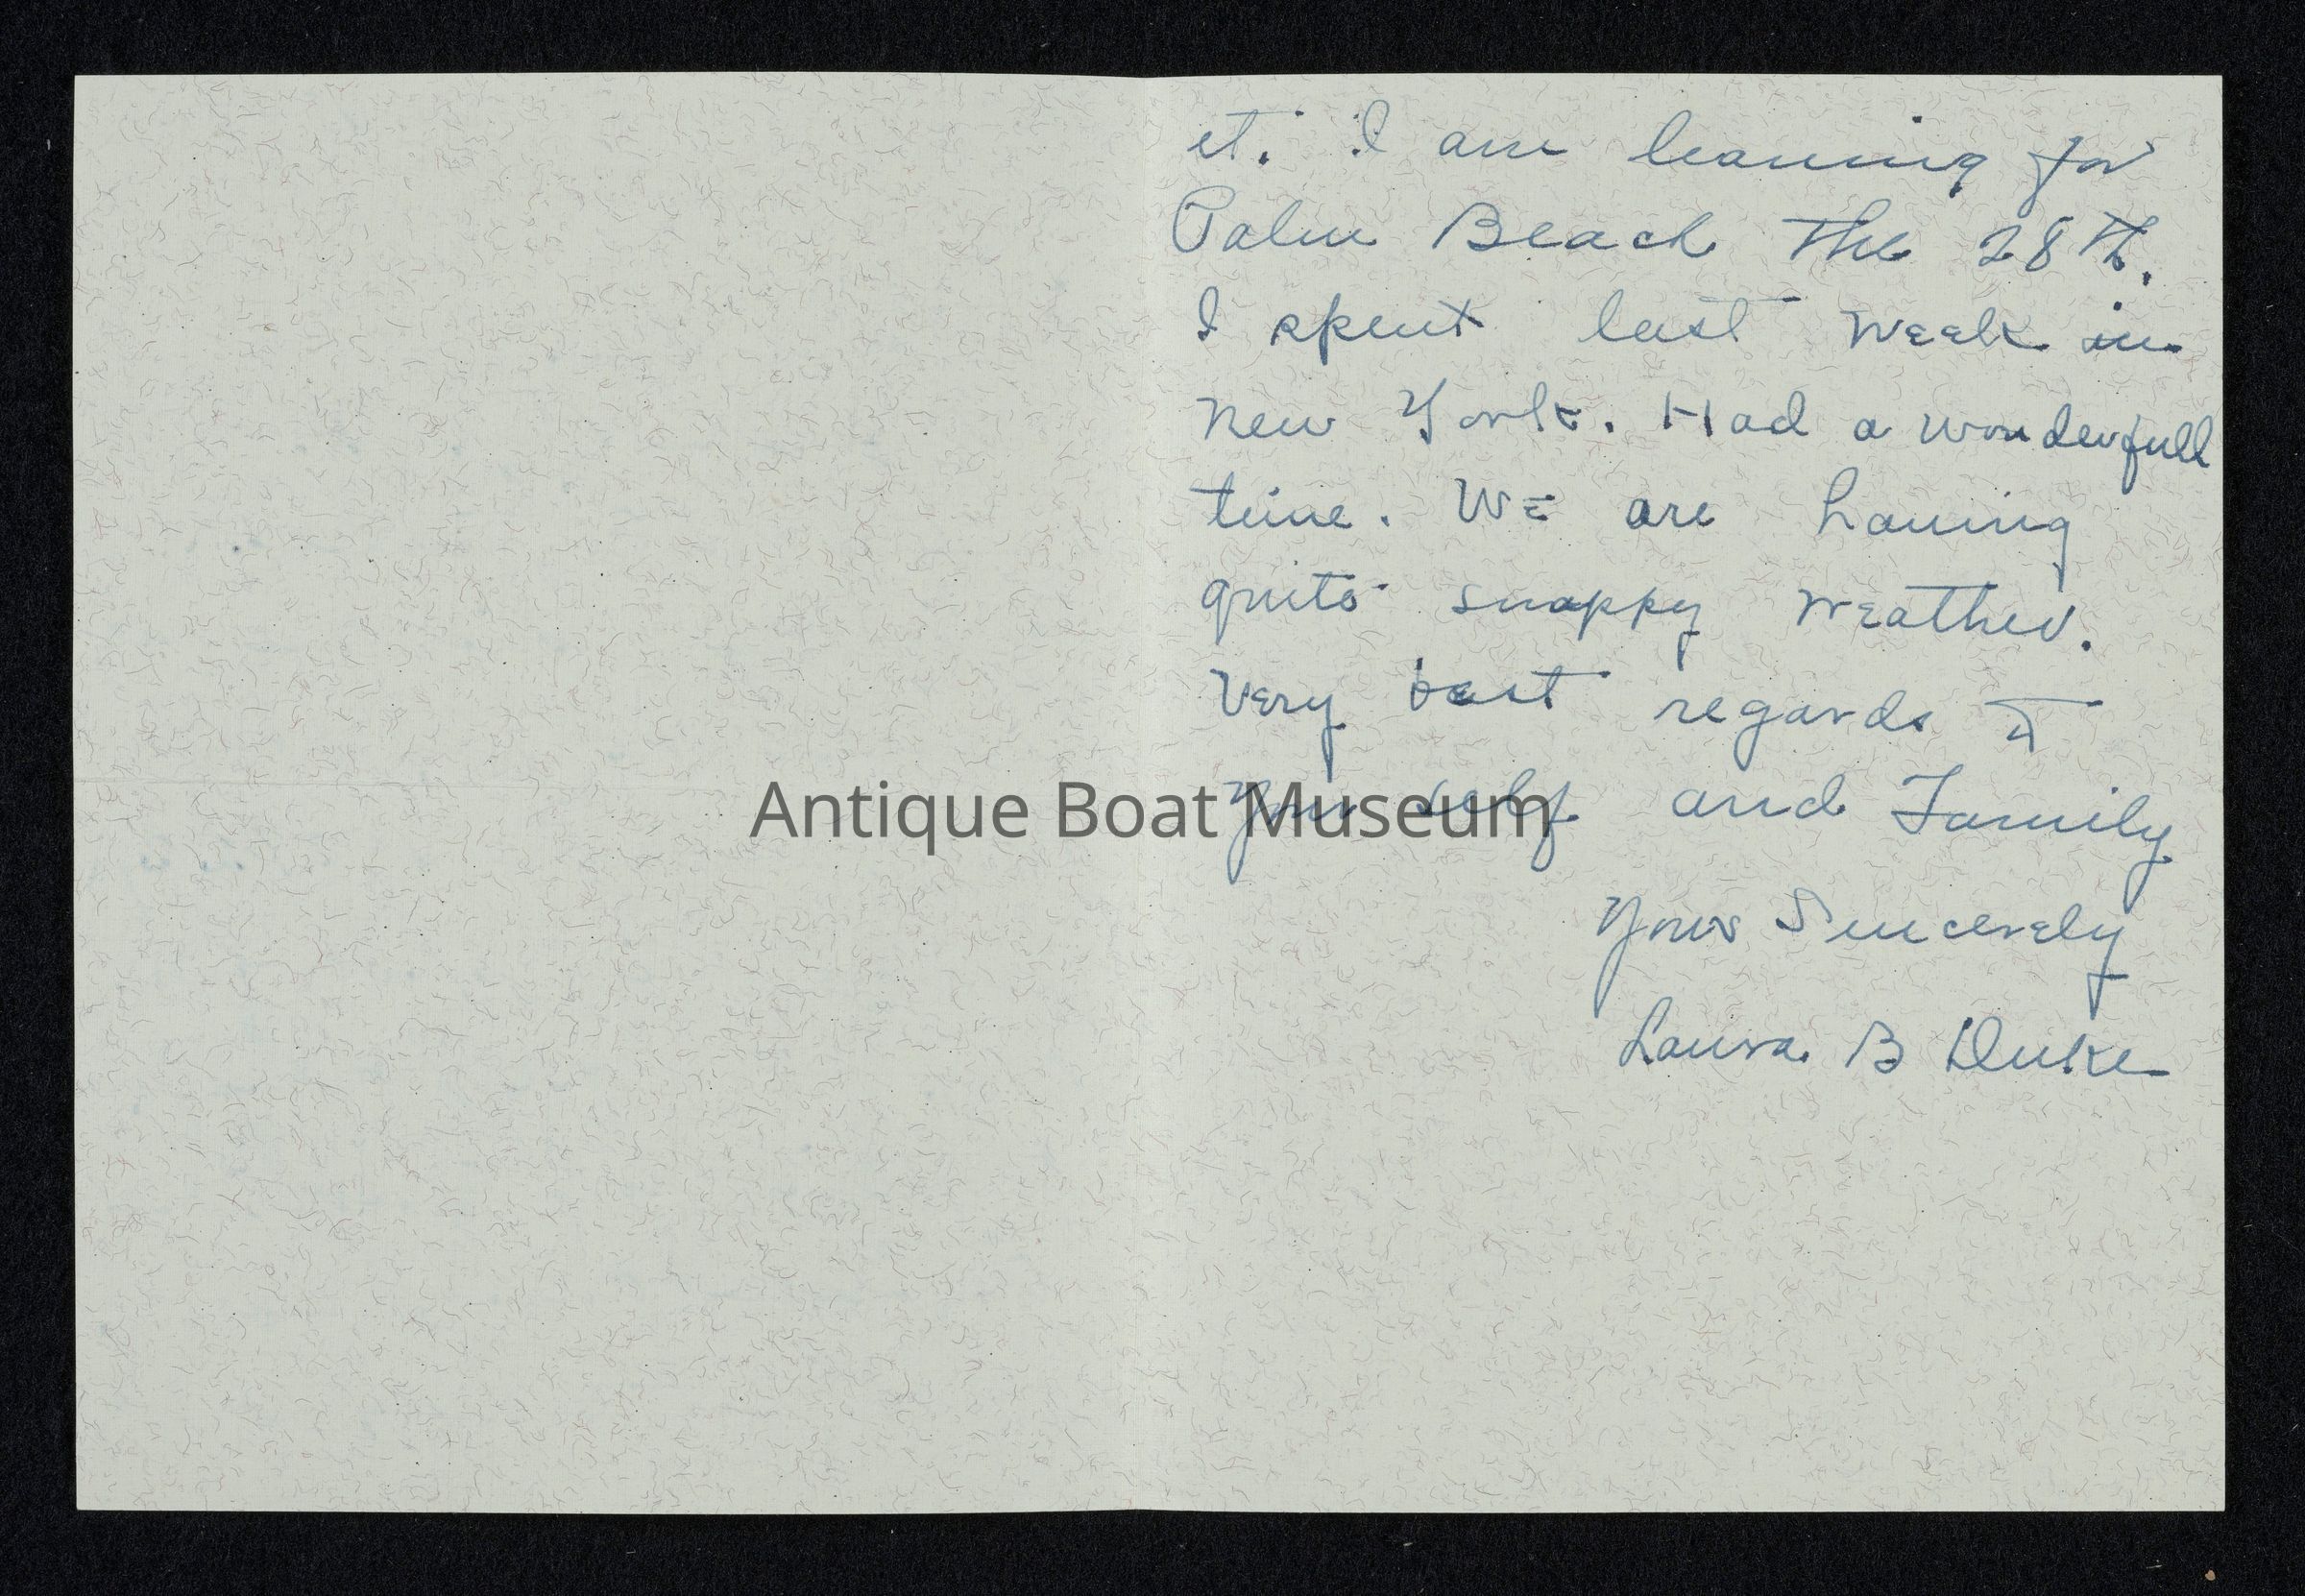 it. I am leaving for
Palm Beach the 28th.
I spent last week in
New York. Had a wonderfull
time. We are having
quite snappy weather.
Very best regards to
Your self and Family
Yours Sincerely
Laura B Duke
Antique Boat Museum